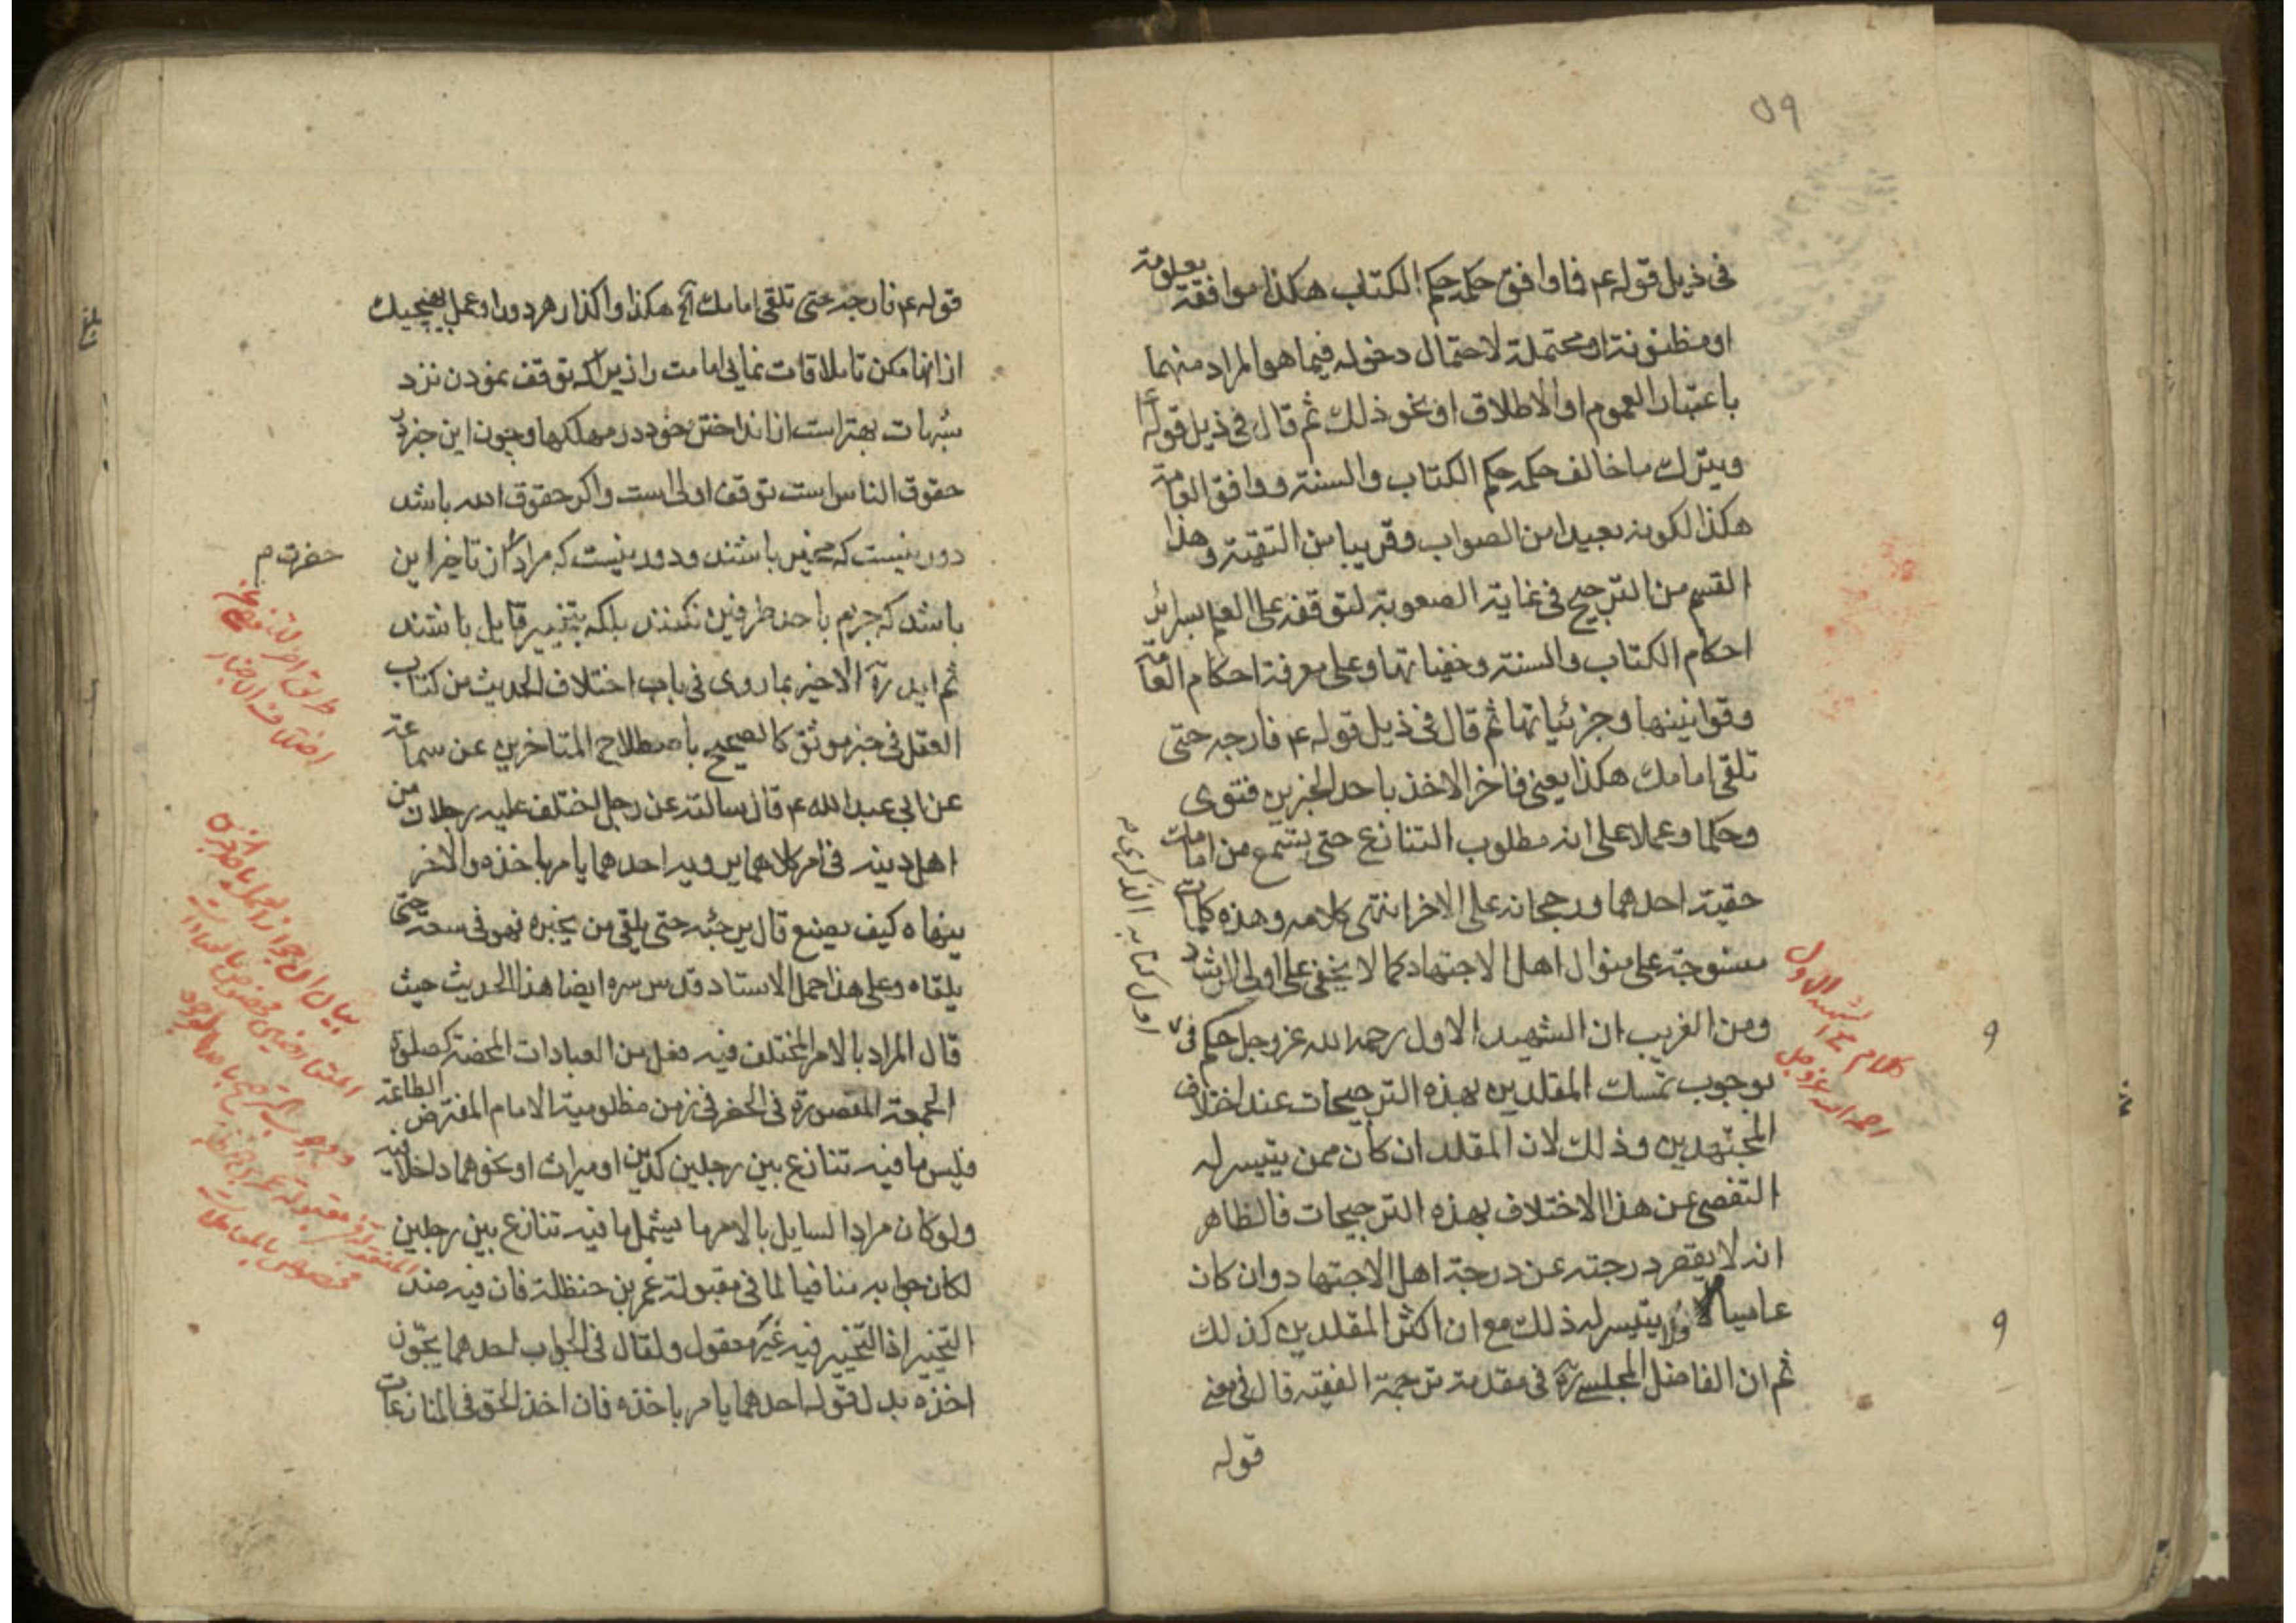 ٥٩
فى ذيل قوله ع فما وافق حكمه حكم الكتاب هكذا موافقة معلومة
او مظنونة او محتملة لاحتمال دخوله فيما هو المراد منهما
باعتبار العموم او الاطلاق او نحو ذلك ثم قال فى ذيل قوله ع
ويترك ما خالف حكمه حكم الكتاب والسنة ووافق العامة
هكذا لكونه بعيدا من الصواب وقريبا من التقية وهذا
القسم من الترجيح فى غاية الصعوبة لتوقفه على العلم بسرائر
احكام الكتاب والسنة وخفياتها وعلى معرفة احكام العامة
وقوانينها وجزئياتها ثم قال فى ذيل قوله ع فارجه حتى
تلقى امامك هكذا يعنى فاخر الاخذ باحد الخبرين فتوى
وحكما وعملا على انه مطلوب التنازع حتى تسمع من امامك
حقية احدهما ورجحانه على الاخر انتهى كلامه وهذه كلمات
منسوجة على منوال اهل الاجتهاد كما لا يخفى على اولى الرشاد
ومن الغريب ان الشهيد الاول رحمه الله عز وجل حكم فى
اول كتابه الذكرى م
بوجوب تمسك المقلدين بهذه الترجيحات عند اختلاف
المجتهدين وذلك لان المقلد ان كان ممن يتيسر له
التفصى عن هذا الاختلاف بهذه الترجيحات فالظاهر
انه لا يقصر درجته عن درجة اهل الاجتهاد وان كان
عاميا لا يتيسر له ذلك مع ان اكثر المقلدين كذلك
ثم ان الفاضل المجلسى ره فى مقدمة ترجمة الفقيه قال فى معنى
قوله
كلام الشهيد الاول
رحمه الله عز وجل
٩
٩
قوله ع فارجه حتى تلقى امامك آه هكذا واگذار هر دو را وعمل بهيچيك
از انها مكن تا ملاقات نمايى امامت را زيرا كه توقف نمودن نزد
شبهات بهتر است از انداختن خود در مهلكها وچون اين خبر در
حقوق الناس است توقف اولى است واكر حقوق الله باشد
دور نيست كه مخير باشند ودور نيست كه مراد ان تاخير اين
حضرت م
باشد كه جزم باحد طرفين نكنند بلكه بتخيير قايل باشند
ثم ايد ره الاخير بما روى فى باب اختلاف الحديث من كتاب
العقل فى خبر موثق كالصحيح باصطلاح المتاخرين عن سماعة
عن ابى عبد الله ع قال سالته عن رجل اختلف عليه رجلان من
اهل دينه فى امر كلاهما يرويه احدهما يامر باخذه والاخر
ينهاه كيف يصنع قال يرجئه حتى يلقى من يخبره فهو فى سعة حتى
يلقاه وعلى هذا حمل الاستاد قدس سره ايضا هذا الحديث حيث
قال المراد بالامر المختلف فيه فعل من العبادات المحضة كصلوة
الجمعة المقصورة فى الحضر فى زمن مظلومية الامام المفترض الطاعة
فليس ما فيه تنازع بين رجلين كدين او ميراث او نحوهما داخلا فيه
ولو كان مراد السايل بالامر ما يشمل ما فيه تنازع بين رجلين
لكان جوابه منافيا لما فى مقبولة عمر بن حنظلة فان فيه ضد
التخيير اذ التخيير فيه غير معقول ولقال فى الجواب احدهما يجوز
اخذه بدل قوله احدهما يامر باخذه فان اخذ الحق فى المنازعات